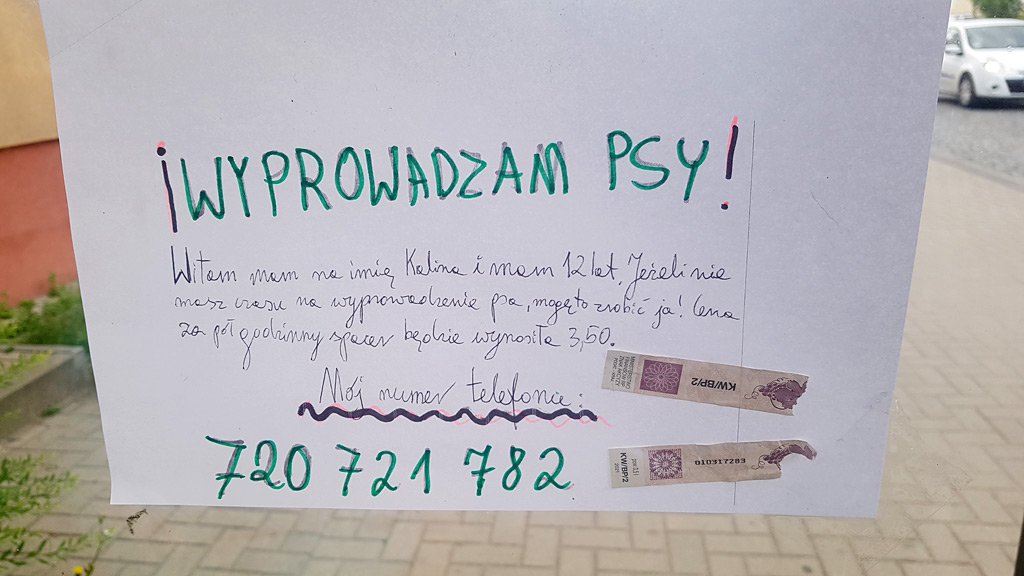 ¡WYPROWADZAM PSY!
Witam mam na imię Kalina i mam 12 lat, Jeżeli nie
masz czasu na wyprowadzenie psa, mogę to zrobić ja! Cena
za pół godzinny spacer będzie wynosiła 3,50.
Mój numer telefonu:
720 721 782
KW/BP/2
010317283
KW/BP/2